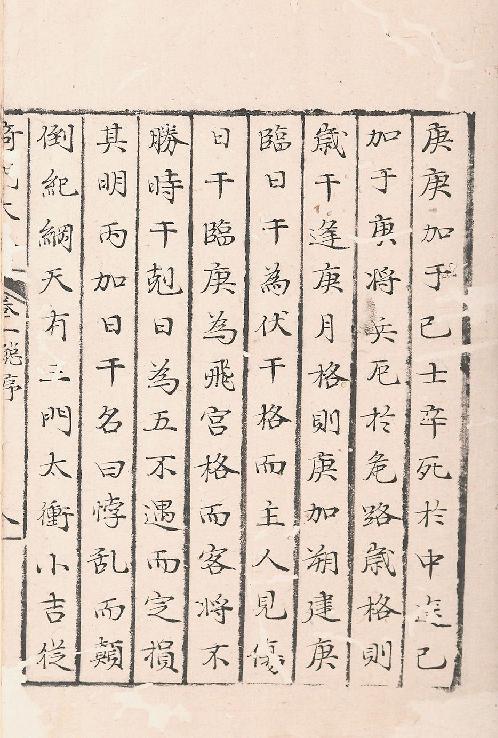 庚庚加于己士卒死於中途己
加于庚将兵厄於危路歳格則
歳干逢庚月格則庚加朔建庚
臨日干為伏干格而主人見傷
日干臨庚為飛宫格而客将不
勝時干剋日為五不遇而定損
其明丙加日干名曰悖乱而顛
倒紀綱天有三門太衝小吉従
卷一 総序